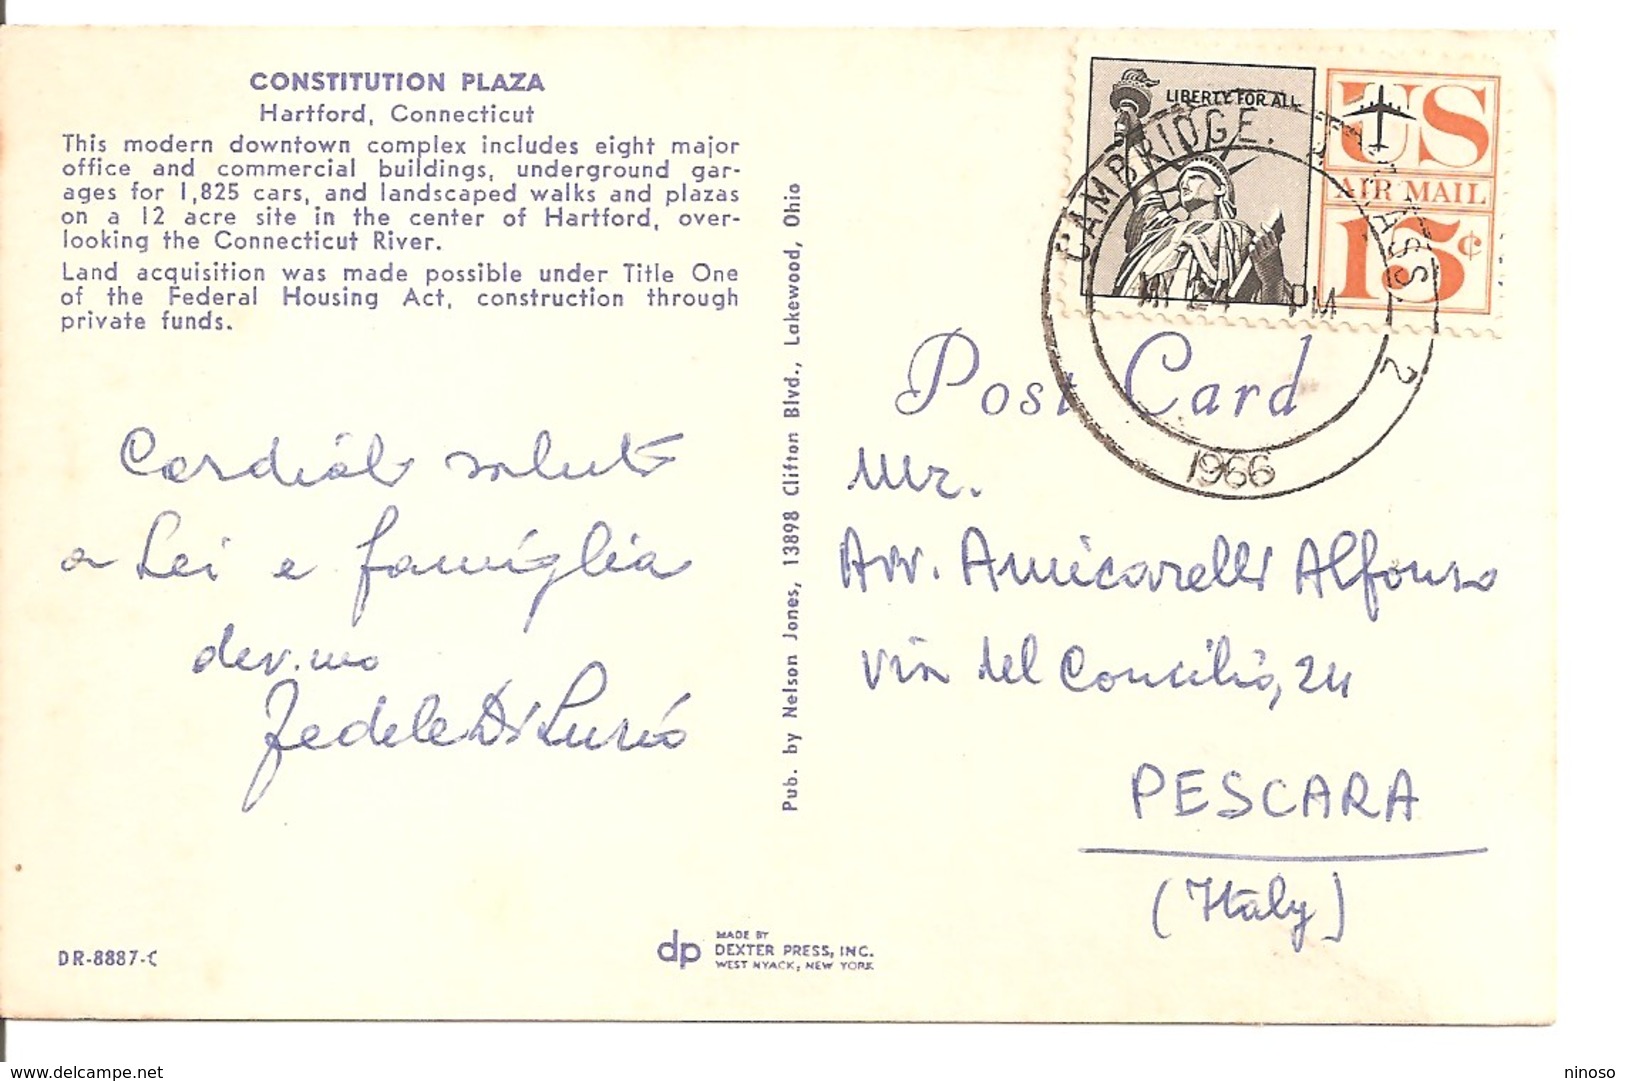 CONSTITUTION PLAZA
Hartford, Connecticut
This modern downtown complex includes eight major
office and commercial buildings, underground gar-
ages for 1,825 cars, and landscaped walks and plazas
on a 12 acre site in the center of Hartford, over-
looking the Connecticut River.
Land acquisition was made possible under Title One
of the Federal Housing Act, construction through
private funds.
Cordiali saluti
a Lei e famiglia
dev.mo
Fedele Di Lurió
DR-8887-C
Pub. by Nelson Jones, 13898 Clifton Blvd., Lakewood, Ohio
dp
MADE BY
DEXTER PRESS, INC.
WEST NYACK, NEW YORK
LIBERTY FOR ALL
US
AIR MAIL
15¢
CAMBRIDGE. MASS. 2
MY 24 PM
1966
Post Card
Mr.
Avv. Amicarelli Alfonso
via del Concilio, 24
PESCARA
(Italy)
www.delcampe.net
ninoso